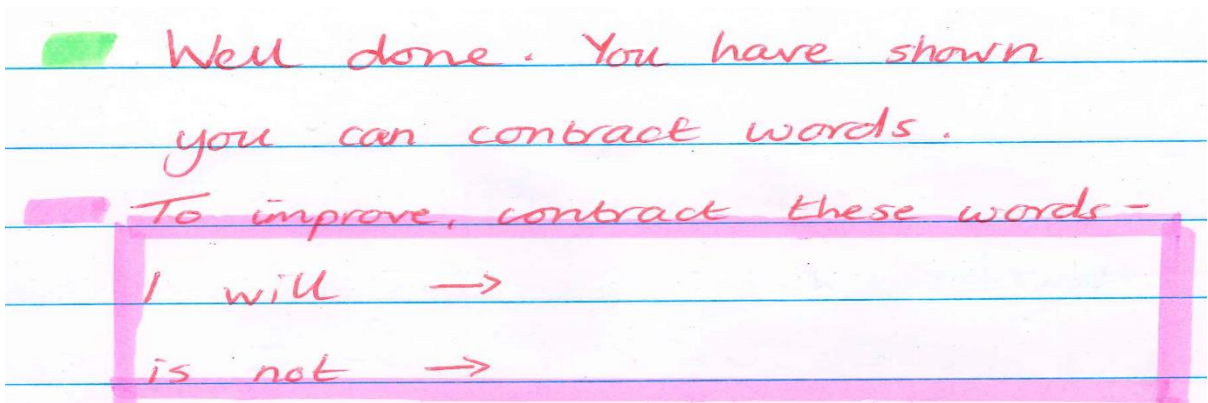 Well done. You have shown
you can contract words.
To improve, contract these words-
I will →
is not →